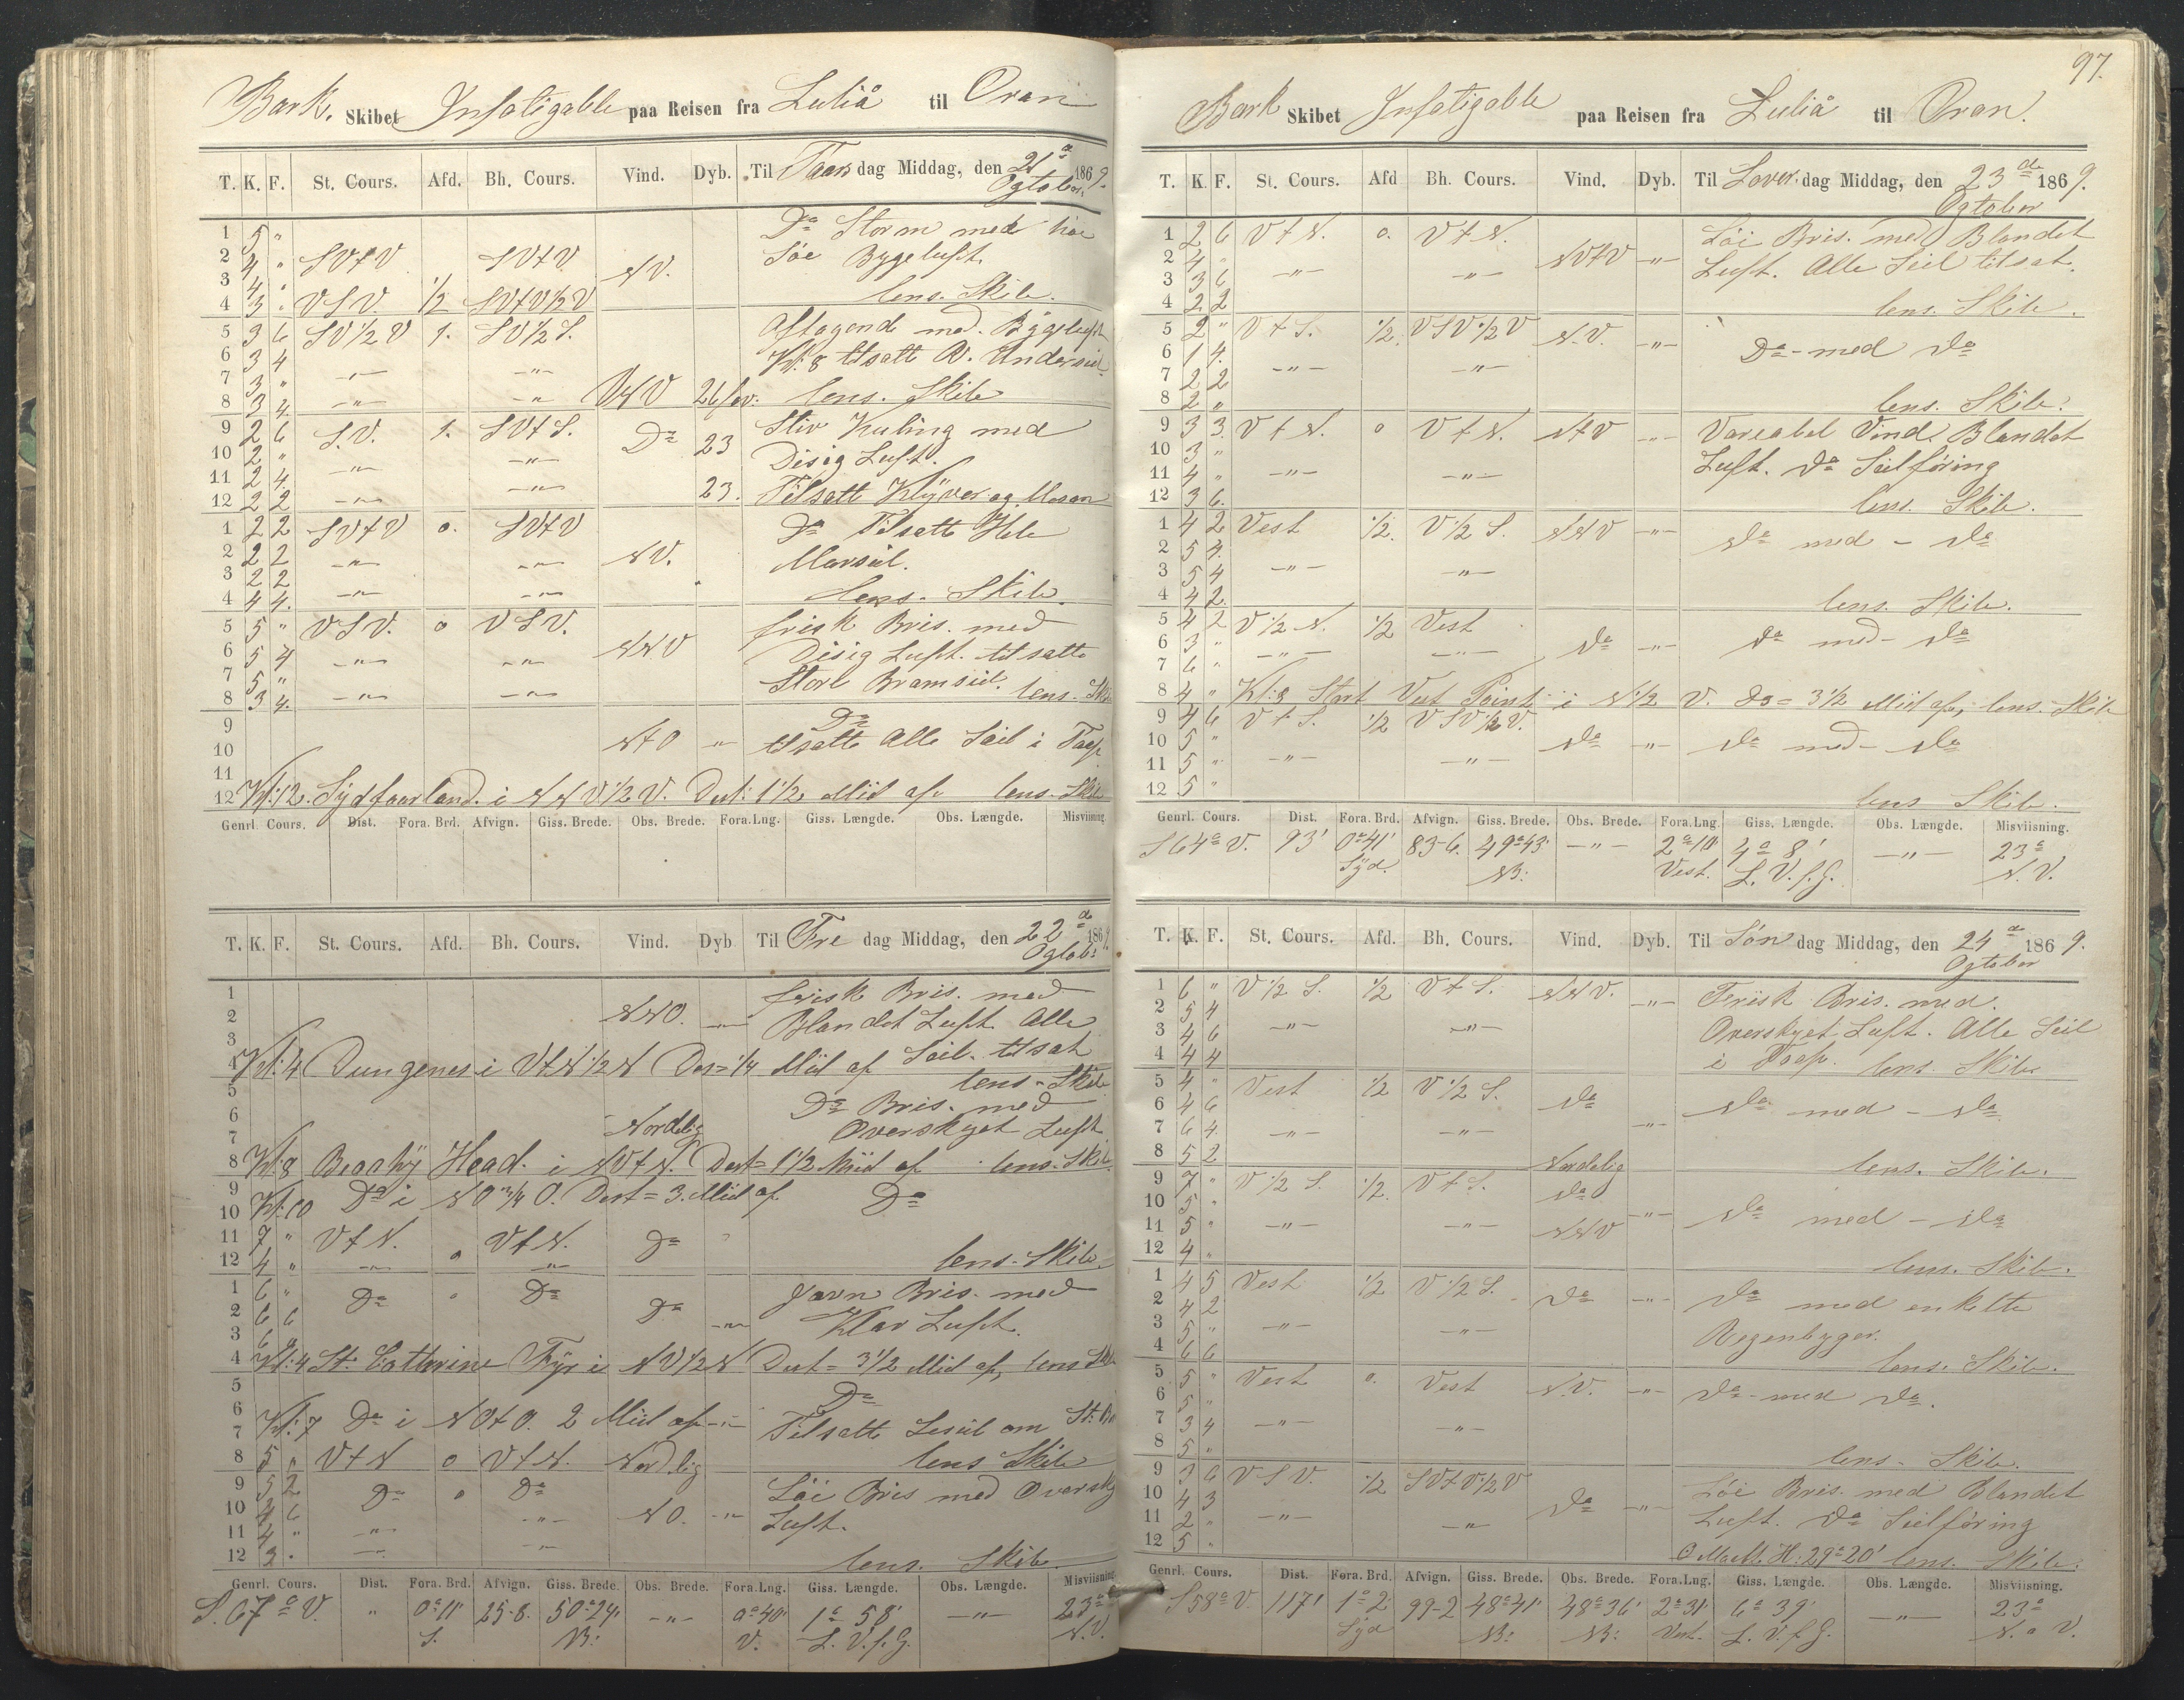 Bark. Skibet Infatigable paa Reisen fra Luliå til Oran
T. K. F. St. Cours. Afd. Bh. Cours. Vind. Dyb. Til Taarsdag Middag, den 21de 1869.
Ogtober
1 5 " Do Storm med høi
2 4 " SVtV SVtV NV. Søe Bygeluft.
3 4 "
4 3 " VSV. 1/2 SVtV1/2V lens. Skib.
5 3 6 SV1/2V 1. SV1/2S. Aftagende med. Bygeluft
6 3 4 -"- -"- Kl: 8 tilsatt
7 3 "
8 3 4 -"- -"- VNV 26 fav. lens. Skib
9 2 6 S.V. 1. SVtS. Do 23 Stiv Kuling med
10 2 " -"- -"- Disig Luft.
11 2 4
12 2 2 -"- -"- 23. Tilsatt Klyver og Mesan
1 2 2 SVtV 0. SVtV Do Tilsatte Hele
2 2 2 -"- -"- NV. Marseil.
3 2 2
4 4 4. -"- -"- lens. Skib.
5 5 " VSV. 0 VSV. frisk Bris. med
6 5 4 -"- -"- NNV Disig Luft. tilsatte
7 5 " Store Bramseil.
8 3 4. -"- -"- lens. Skib
9 Do
10 NtO " tilsatte Alle Seil i
11
12 Kl: 12. Sydforland. i NNV1/2V. Dist: 1 1/2 Miil af. lens. Skib
Genrl. Cours. Dist. Fora. Brd. Afvign. Giss. Brede. Obs. Brede. Fora. Lng. Giss. Længde. Obs. Længde. Misviisning.
T. K. F. St. Cours. Afd. Bh. Cours. Vind. Dyb Til Fredag Middag, den 22de 1869.
Ogtobr
1 frisk Bris. med
2 NNO. -"- Blandet Luft. Alle
3
4 Kl: 4 Dungenes i VtN1/2N Dist = 1/4 Miil af Seil. tilsat
5 lens. Skib
6 Do Bris. med
7 Nordlig Overskyet Luft
8 Kl: 8 Beachÿ Head. i NVtN. Dist = 1 1/2 Miil af lens. Skib.
9
10 Kl: 10 Do i NO 3/4 O. Dist = 3. Miil af. Do
11 7 " VtN. VtN. Do
12 4 " -"- 0 -"- lens. Skib.
1 6 " Do " Do Do Javn Bris. med
2 6 6 -"- Klar Luft.
3 6 "
4 Kl: 4 St. Catherine Fÿr i NV1/2N Dist = 3 1/2 Miil af, lens Skib
5
6 Do
7 Kl: 7 Do i NOtO. 2 Miil af -"- Tilsatte Leseil om
8 5 " VtN 0 VtN. Nordlig lens Skib
9 5 2 Do 0 Do Løi Bris med Oversky
10 4 6 -"- NO. -"- Luft.
11 4 " -"-
12 3 " -"- -"- lens. Skib.
Genrl. Cours. Dist. Fora. Brd. Afvign. Giss. Brede. Obs. Brede. Fora. Lng. Giss. Længde. Obs. Længde. Misviisning.
S. 67° V. " 0° 11' 25-8. 50° 24' -"- 0° 40' 1° 58' -"- 23°
S. NB: V. L. V. f. G. N.V.
97.
Bark Skibet Infatigable paa Reisen fra Luliå til Oran.
T. K. F. St. Cours. Afd Bh. Cours. Vind. Dyb. Til Løver.dag Middag, den 23de 1869.
Ogtober
1 2 6 VtN. 0. VtN. Løi Bris. med Blandet
2 4 " -"- -"- NVtV -"- Luft. Alle Seil tilsat.
3 3 6
4 2 2 lens. Skib.
5 2 " VtS. 1/2. VSV1/2V N.V. -"-
6 1 4. Do - med Do
7 2 2 -"- -"-
8 2 " lens. Skib.
9 3 3. VtN. 0 VtN. NtV -"- Variabel Vind. Blandet
10 3 " Luft. Do Seilføring
11 4 " -"- -"-
12 3 6. lens. Skib.
1 4 2 Vest 1/2. V1/2S. NNV -"-
2 5 4. Do med - Do
3 5 4 -"- -"-
4 4 2. lens. Skib.
5 4 2 V1/2N. 1/2 Vest
6 3 " -"- -"- Do -"- Do med - Do
7 6 "
8 4 " Kl: 8 Start Vest Point i N1/2V. Do = 3 1/2 Miil af, lens. Skib
9 4 6 VtS. 1/2 VSV1/2V.
10 5 " Do -"- Do med - Do
11 5 " -"- -"-
12 5 " lens Skib.
Genrl. Cours. Dist. Fora. Brd. Afvign. Giss. Brede. Obs. Brede. Fora. Lng. Giss. Længde. Obs. Længde. Misviisning.
S 64° V. 93' 0° 41' 83-6. 49° 43' -"- 2° 10' 4° 8' -"- 23°
Syd. NB: Vest. L. V. f. G. N. V.
T. K. F. St. Cours. Afd. Bh. Cours. Vind. Dyb. Til Søndag Middag, den 24de 1869.
Ogtober
1 6 " V1/2S. 1/2 VtS. NNV. -"- Feriisk Bris. med.
2 5 4 Overskyet Luft. Alle Seil
3 4 6 -"- -"-
4 4 4 i lens. Skib.
5 4 " Vest 1/2 V1/2S. Do
6 4 6 Do med - Do
7 6 4. -"- -"- -"-
8 5 2 Nordelig lens. Skib.
9 7 " V1/2S. 1/2. VtS. Do
10 5 " -"- Do med - Do
11 5 " -"- -"- NNV
12 4 " lens. Skib.
1 4 5 Vest 1/2 V1/2S. Do -"- Do med enkelte
2 4 2
3 5 " -"- -"- Regenbyger.
4 6 6 lens. Skib.
5 5 " Vest 0. Vest N.V. -"- Do - med Do.
6 5 "
7 3 4 -"- -"-
8 5 " lens - Skib.
9 3 6 VSV. 1/2 SVtV1/2V Løi Bris. med Blandet
10 4 3 Do -"-
11 2 " -"- -"- Luft. Do Seilføring
12 5 " H: 29° 20' lens. Skib.
Genrl. Cours. Dist. Fora. Brd. Afvign. Giss. Brede. Obs. Brede. Fora. Lng. Giss. Længde. Obs. Længde. Misviisning.
S 58° V. 117' 1° 2' 99-2 48° 41' 48° 36' 2° 31' 6° 39' -"- 23°
Syd NB: NB: Vest. L. V. f G. N. V.